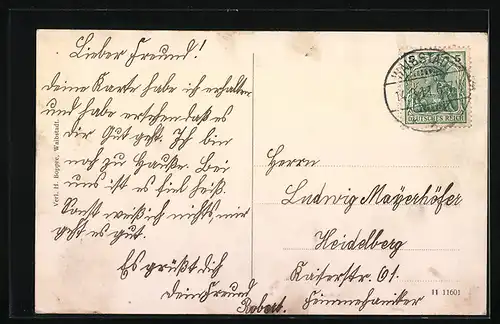 Lieber Freund!
deine Karte habe ich erhalten
und habe ersehen daß es
dir Gut geht. Ich bin
noch zu Hause. Bei
uns ist es sehr heiß.
Sonst weiß ich nichts, mir
geht es gut.
Es grüßt dich
dein Freund
Robert.
Verl. H. Boppre, Waibstadt.
WAIBSTADT
5
DEUTSCHES REICH
Herrn
Ludwig Mayerhöfer
Heidelberg
Kaiserstr. 61.
Feinmechaniker
II 11601